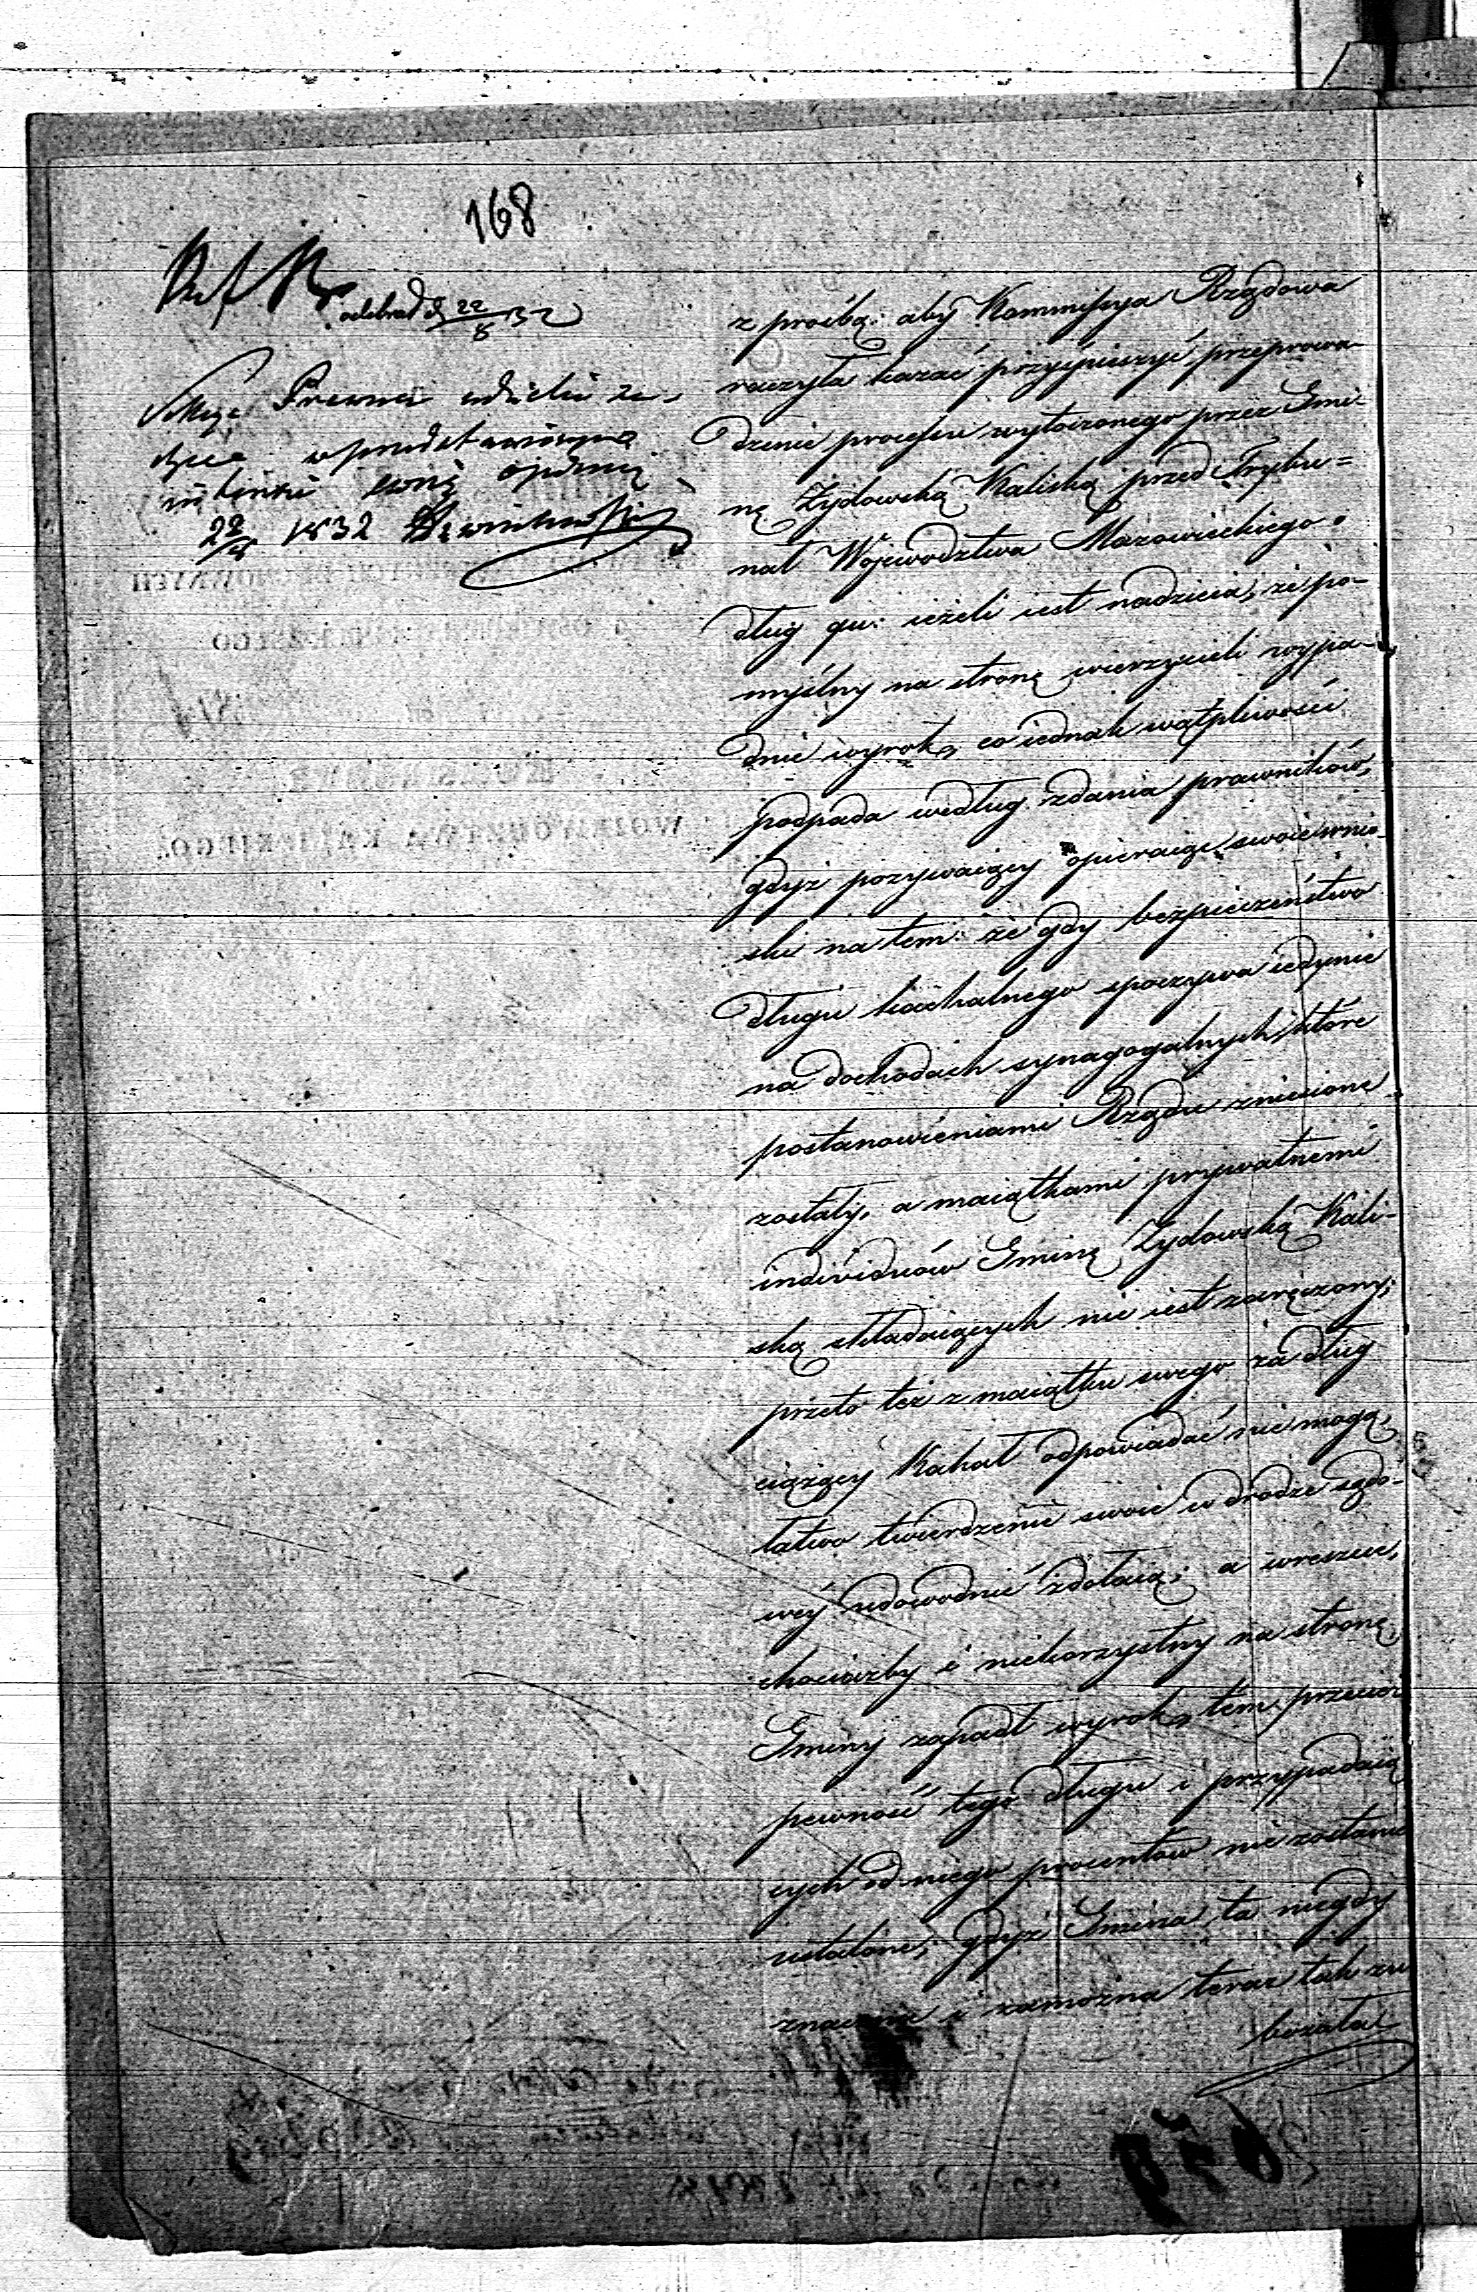 168
odebrał d 22/8 32
Sekcya Prawna udzieli ze-
chce w przedstawionym
swoię opinią
22/8 1832
z prośbą: aby Kommissya Rządowa
raczyła kazać przyśpieszyć przeprowa-
dzenie processu wytoczonego przez Gmi-
nę Żydowską Kaliską przed Trybu=
nał Województwa Mazowieckiego.
dług qu: ieżeli iest nadzieia, że po-
myślny na stronę wierzycieli wypa-
dnie wyrok, co iednak wątpliwości
podpada według zdania prawników,
gdyż pozywaiący opieraiąc swoie wnio-
ski na tem: że gdy bezpieczeństwo
długu kachalnego spoczywa iedynie
na dochodach synagogalnych, które
postanowieniami Rządu zniesione
zostały, a maiątkami prywatnemi
individuów Gminę Żydowską Kali-
ską składaiących nie iest zaręczony,
przeto też z maiątku swego za dług
ciążący Kahał odpowiadać nie mogą,
łatwo twierdzenie swoie w drodze sądo-
wéy udowodnić zdołaią; a wreszcie,
chociażby i niekorzystny na stronę
Gminy zapadł wyrok, tém przecież
pewność tego długu i przypadaią
cych od niego procentów nie zostanie
ustalone, gdyż Gmina ta niegdy
znaczna i zamożna teraz tak zu
bożała